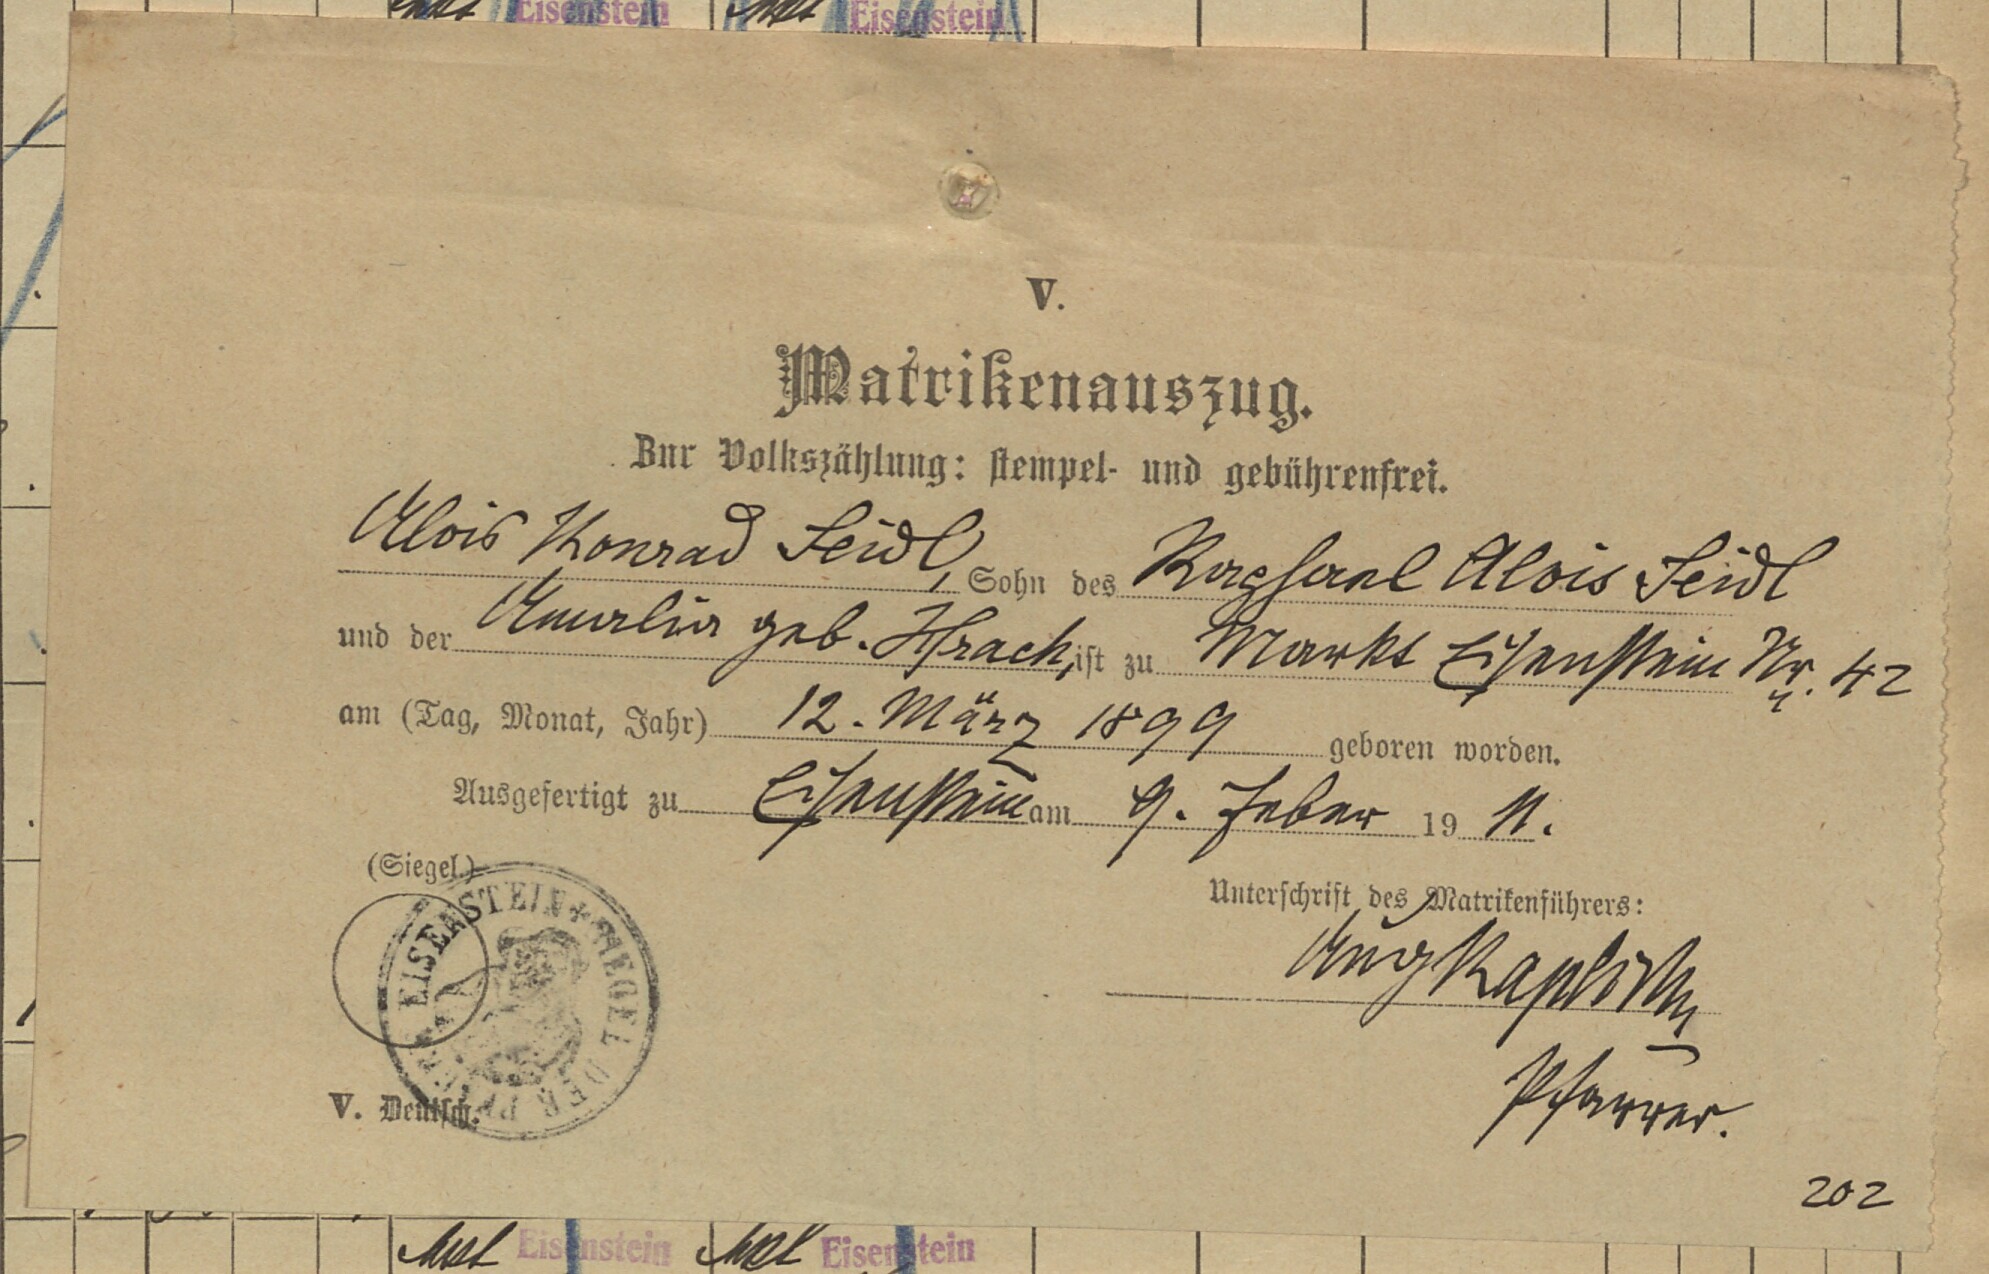 Eisenstein Eisenstein
V.
Matrikenauszug.
Zur Volkszählung: stempel- und gebührenfrei.
Alois Konrad Seidl, Sohn des Raphael Alois Seidl
und der Amalia geb. Hrach, ist zu Markt Eisenstein Nr. 42
am (Tag, Monat, Jahr) 12. März 1899 geboren worden.
Ausgefertigt zu Eisenstein am 9. Feber 1911.
(Siegel.)
EISENSTEIN + SIEGEL DER
Unterschrift des Matrikenführers:
Aug
Pfarrer.
V. Deutsch.
202
Markt Eisenstein Markt Eisenstein